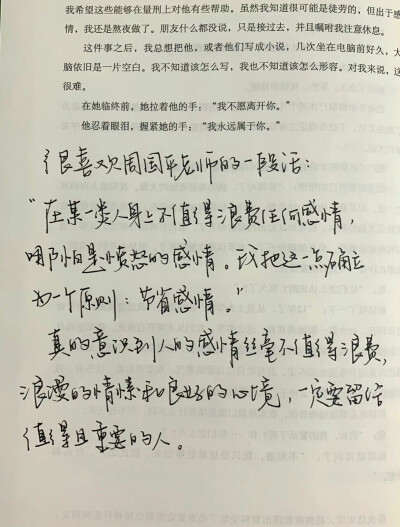 我希望这些能够在量刑上对他有些帮助。虽然我知道很可能是徒劳的，但出于感
情，我还是熬夜做了。朋友什么都没说，只是接过去，并且嘱咐我注意休息。
这件事之后，我总想把他，或者他们写成小说，几次坐在电脑前好久，大
脑依旧是一片空白。我不知道该怎么写，我也不知道该怎么形容。对我来说，这
很难。
在她临终前，她拉着他的手：“我不愿离开你。”
他忍着眼泪，握紧她的手：“我永远属于你。”
很喜欢周国平老师的一段话：
“在某一类人身上不值得浪费任何感情，
哪怕是愤怒的感情。我把这一点确立
为一个原则：节省感情。”
真的意识到人的感情丝毫不值得浪费，
浪漫的情愫和良好的心境，一定要留给
值得且重要的人。